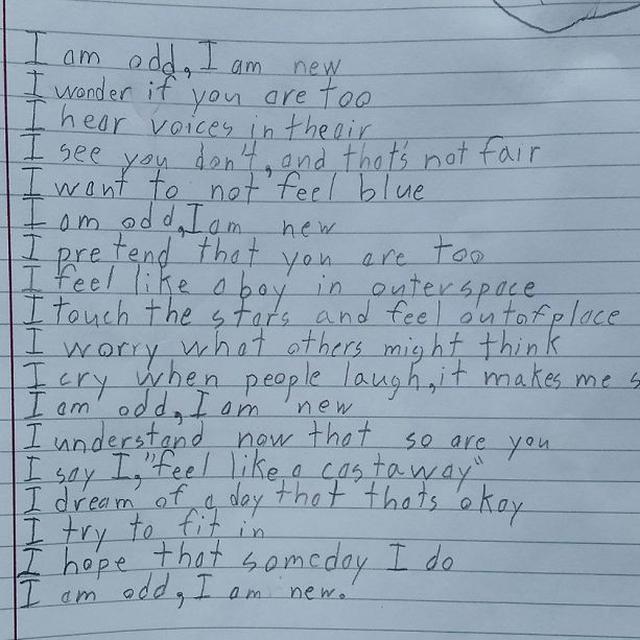 I am odd, I am new
I wonder if you are too
I hear voices in theair
I see you don't, and that's not fair
I want to not feel blue
I am odd,Iam new
I pretend that you are too
I feel like a boy in outerspace
I touch the stars and feel outofplace
I worry what others might think
I cry when people laugh,it makes me s
I am odd, I am new
I understand now that so are you
I say I,"feel like a castaway"
I dream of a day that thats okay
I try to fit in
I hope that someday I do
I am odd, I am new.